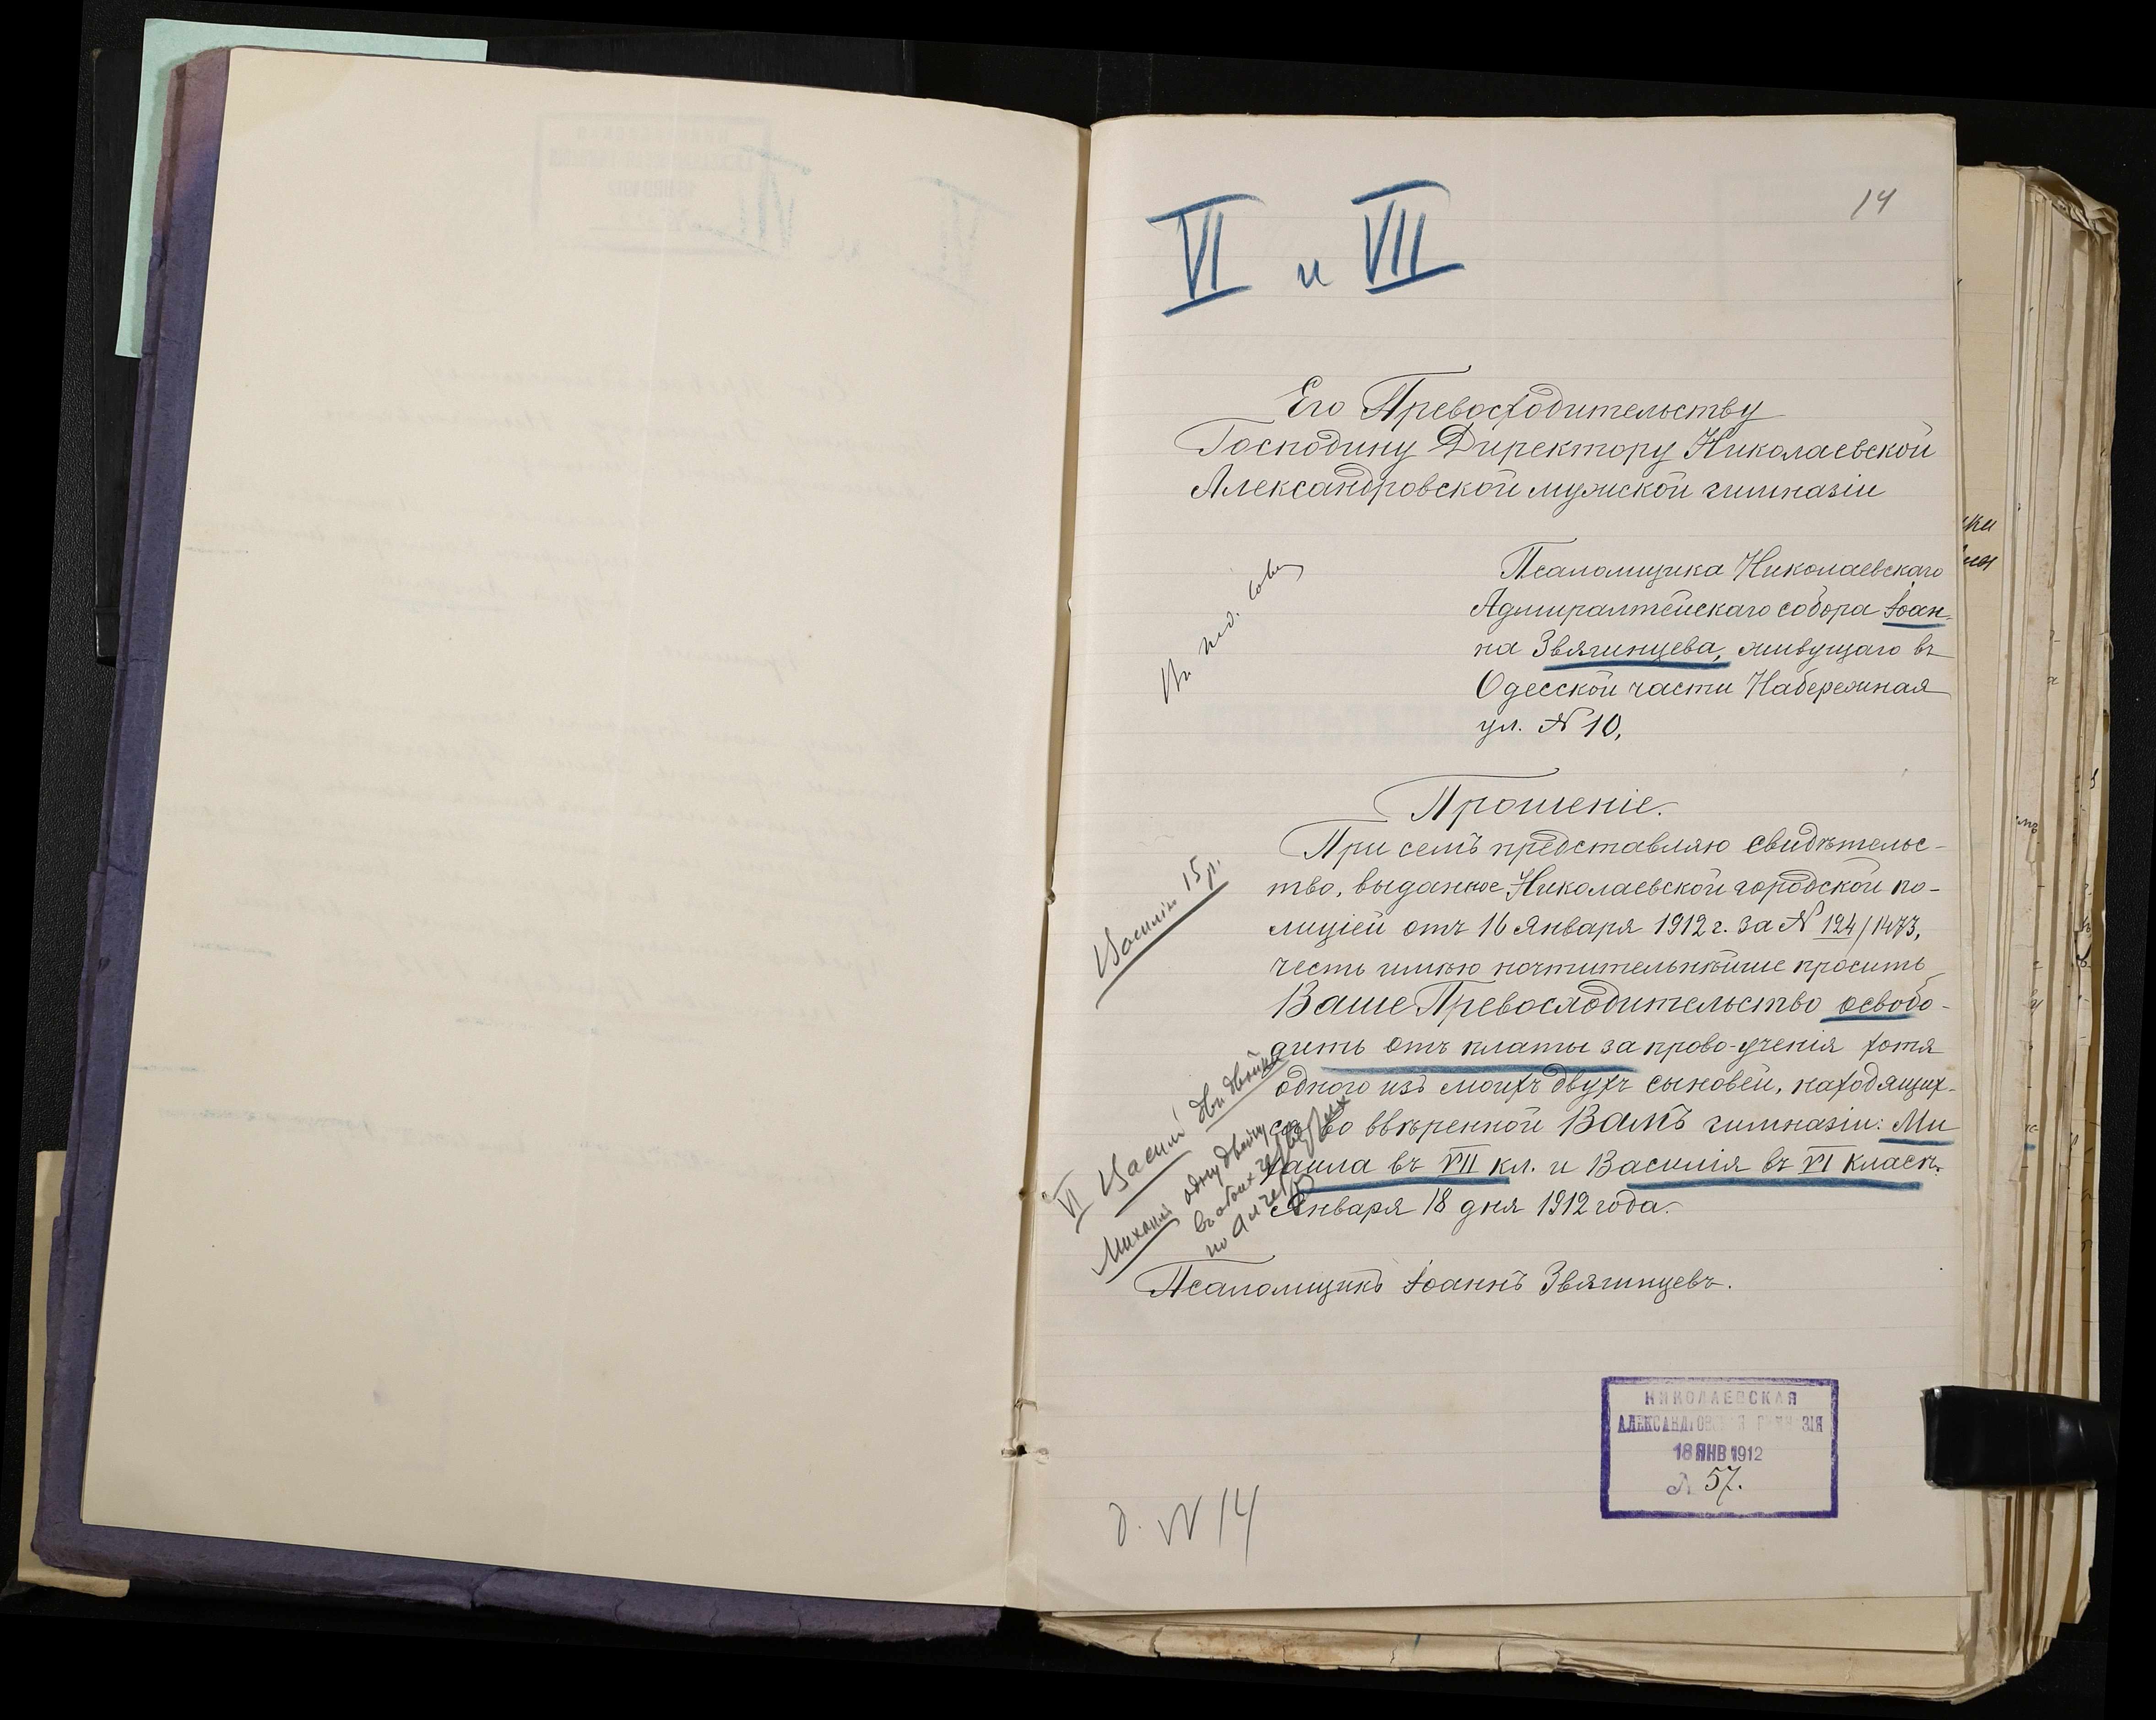 14
VI и VII
Его Превосходительству
Господину Директору Николаевской
Александровской мужской гимназіи
Псаломщика Николаевскаго
Адмиралтейскаго собора Іоан-
на Звягинцева, живущаго въ
Одесской части Набережная
ул. № 10,
Прошеніе.
При семъ представляю свидѣтельс-
тво, выданное Николаевской городской по-
лиціей отъ 16 Января 1912 г. за № 124/1473,
честь имѣю почтительнѣйше просить
Ваше Превосходительство освобо-
дить отъ платы за право-ученія хотя
одного изъ моихъ двухъ сыновей, находящих-
ся во ввѣренной Вамъ гимназіи: Ми
хаила въ VII кл. и Василія въ VI класѣ.
Января 18 дня 1912 года.
Псаломщикъ Іоаннъ Звягинцевъ.
Василію 15 р.
VI Василій двѣ двойки
Михаилъ одну двойку
въ обѣихъ четвертях
НИКОЛАЕВСКАЯ
АЛЕКСАНДРОВСКАЯ ГИМНАЗІЯ
18 ЯНВ 1912
№ 57.
д. № 14